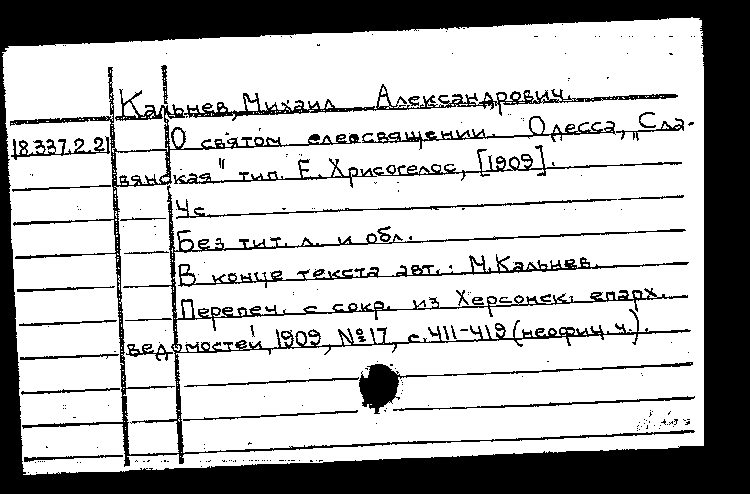 Кальнев, Михаил Александрович.
18.337.2.21 О святом елеосвящении. Одесса, „Сла-
вянская" тип. Е. Хрисогелос, [1909].
4с.
Без тит. л. и обл.
В конце текста авт.: М. Кальнев.
Перепеч. с сокр. из Херсонск. епарх.
ведомостей, 1909, №17, с. 411-419 (неофиц. ч.).